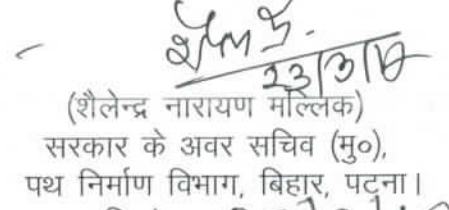 23/3/18
(शैलेन्द्र नारायण मल्लिक)
सरकार के अवर सचिव (मु०),
पथ निर्माण विभाग, बिहार, पटना।